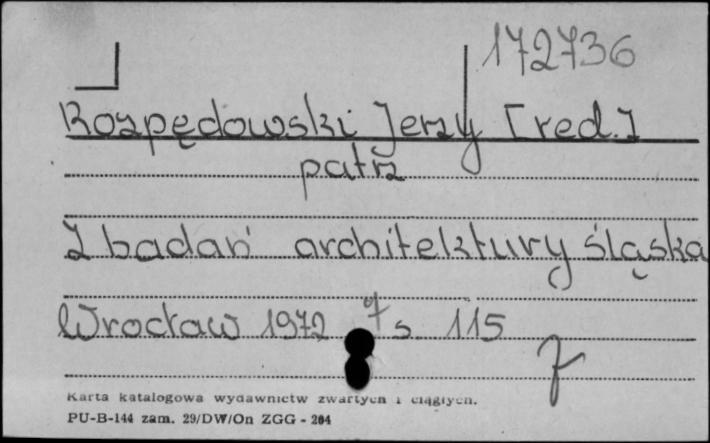 172736
Rozpędowski Jerzy [red.]
patrz
Z badań architektury śląska
Wrocław 1972 s 115
Karta katalogowa wydawnictw zwartych i ciągłych.
PU-B-144 zam. 29/DW/On ZGG - 204